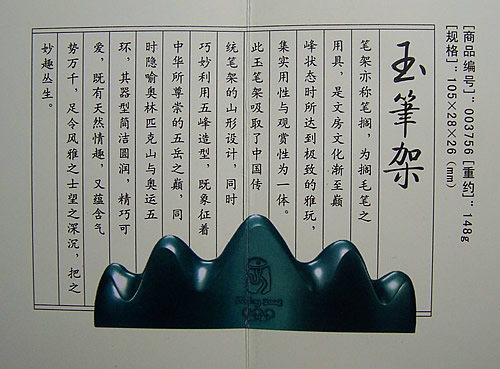 [商品编号]：003756 [重约]：148g
[规格]：105×28×26（mm）
玉筆架
笔架亦称笔搁，为搁毛笔之
用具，是文房文化渐至巅
峰状态时所达到极致的雅玩，
集实用性与观赏性为一体。
此玉笔架吸取了中国传
统笔架的山形设计，同时
巧妙利用五峰造型，既象征着
中华所尊崇的五岳之巅，同
时隐喻奥林匹克山与奥运五
环，其器型简洁圆润，精巧可
爱，既有天然情趣，又蕴含气
势万千，足令风雅之士望之深沉，把之
妙趣丛生。